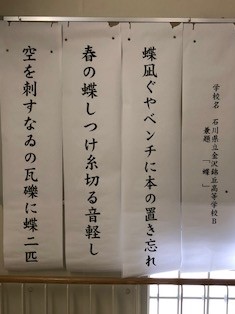 学校名　石川県立金沢錦丘高等学校B
兼題　「蝶」
蝶凪ぐやベンチに本の置き忘れ
春の蝶しつけ糸切る音軽し
空を刺すなゐの瓦礫に蝶二匹